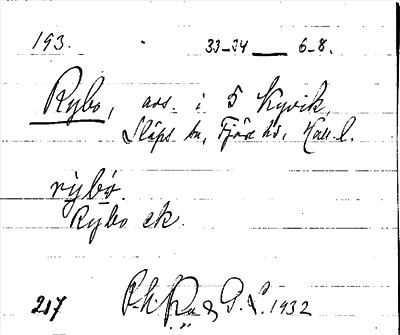 193. 33-34 — 6-8.
Rybo, avs. i 5 Kyvik,
Släps sn, Fjäre hd, Hall. l.
rỳbo.
Rybo ek.
217 P.h. G. L. 1932